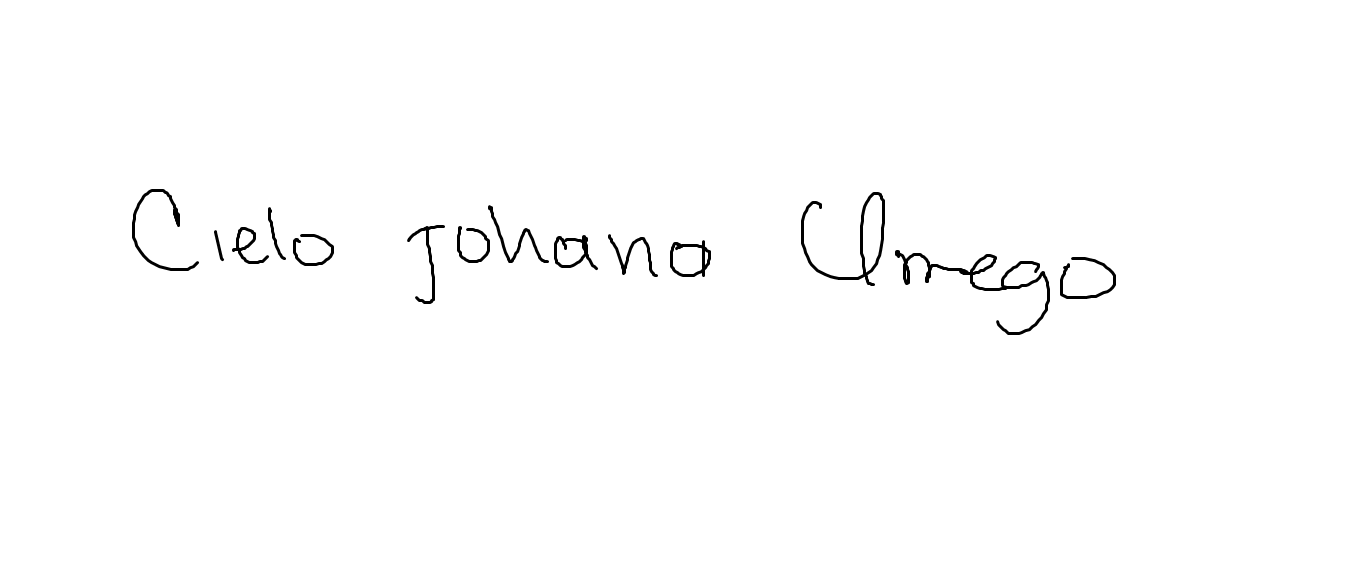 Cielo Johana Urrego